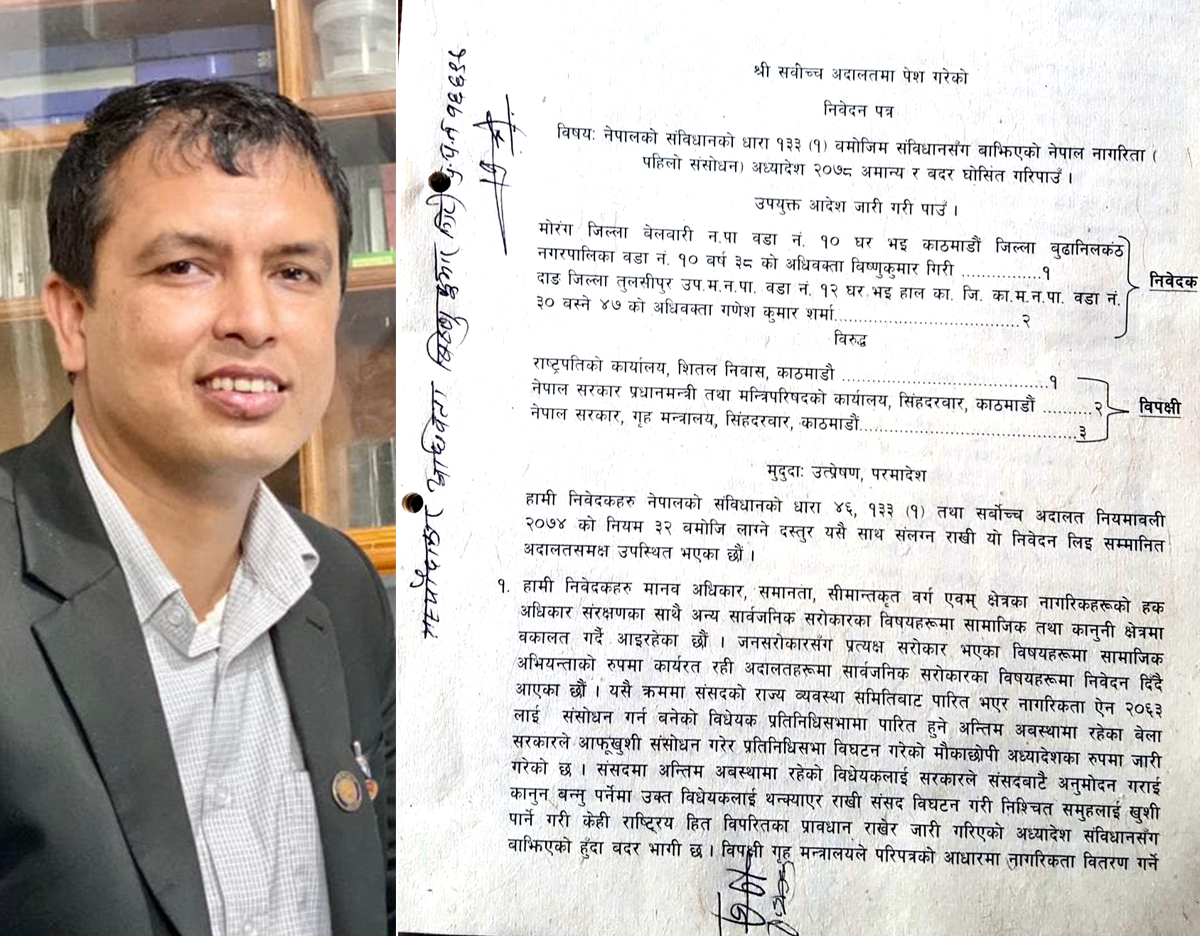 श्री सर्वोच्च अदालतमा पेश गरेको
निवेदन पत्र
विषयः नेपालको संविधानको धारा १३३ (१) वमोजिम संविधानसँग बाझिएको नेपाल नागरिता (
पहिलो संसोधन) अध्यादेश २०७८ अमान्य र बदर घोसित गरिपाउँ ।
उपयुक्त आदेश जारी गरी पाउँ ।
मोरंग जिल्ला वेलवारी न.पा वडा नं. १० घर भइ काठमाडौं जिल्ला वुढानिलकंठ
नगरपालिका वडा नं. १० वर्ष ३८ को अधिवक्ता विष्णुकुमार गिरी ...............१
दाङ जिल्ला तुलसीपुर उप.म.न.पा. वडा नं. १२ घर भइ हाल का. जि. का.म.न.पा. वडा नं.
३० वस्ने ४७ को अधिवक्ता गणेश कुमार शर्मा...................................२
निवेदक
विरुद्ध
राष्ट्रपतिको कार्यालय, शितल निवास, काठमाडौ .......................................१
नेपाल सरकार प्रधानमन्त्री तथा मन्त्रिपरिषदको कार्यालय, सिंहदरवार, काठमाडौं ..........२
नेपाल सरकार, गृह मन्त्रालय, सिंहदरवार, काठमाडौं.........................................३
विपक्षी
मुदुदाः उत्प्रेषण, परमादेश
हामी निवेदकहरु नेपालको संविधानको धारा ४६, १३३ (१) तथा सर्वोच्च अदालत नियमावली
२०७४ को नियम ३२ बमोजि लाग्ने दस्तुर यसै साथ संलग्न राखी यो निवेदन लिइ सम्मानित
अदालतसमक्ष उपस्थित भएका छौं ।
१. हामी निवेदकहरु मानव अधिकार, समानता, सीमान्तकृत वर्ग एवम् क्षेत्रका नागरिकहरूको हक
अधिकार संरक्षणका साथै अन्य सार्वजनिक सरोकारका विषयहरूमा सामाजिक तथा कानुनी क्षेत्रमा
वकालत गर्दै आइरहेका छौं । जनसरोकारसँग प्रत्यक्ष सरोकार भएका विषयहरूमा सामाजिक
अभियन्ताको रुपमा कार्यरत रही अदालतहरूमा सार्वजनिक सरोकारका विषयहरूमा निवेदन दिँदै
आएका छौं । यसै क्रममा संसदको राज्य व्यवस्था समितिबाट पारित भएर नागरिकता ऐन २०६३
लाई संसोधन गर्न बनेको विधेयक प्रतिनिधिसभामा पारित हुने अन्तिम अबस्थामा रहेका बेला
सरकारले आफूखुशी संसोधन गरेर प्रतिनिधिसभा विघटन गरेको मौकाछोपी अध्यादेशका रुपमा जारी
गरेको छ । संसदमा अन्तिम अबस्थामा रहेको विधेयकलाई सरकारले संसदबाटै अनुमोदन गराई
कानुन बन्नु पर्नेमा उक्त विधेयकलाई थन्क्याएर राखी संसद विघटन गरी निश्चित समुहलाई खुशी
पार्ने गरी केही राष्ट्रिय हित विपरितका प्रावधान राखेर जारी गरिएको अध्यादेश संविधानसँग
वाझिएको हुँदा बदर भागी छ । विपक्षी गृह मन्त्रालयले परिपत्रको आधारमा नागरिकता वितरण गर्ने